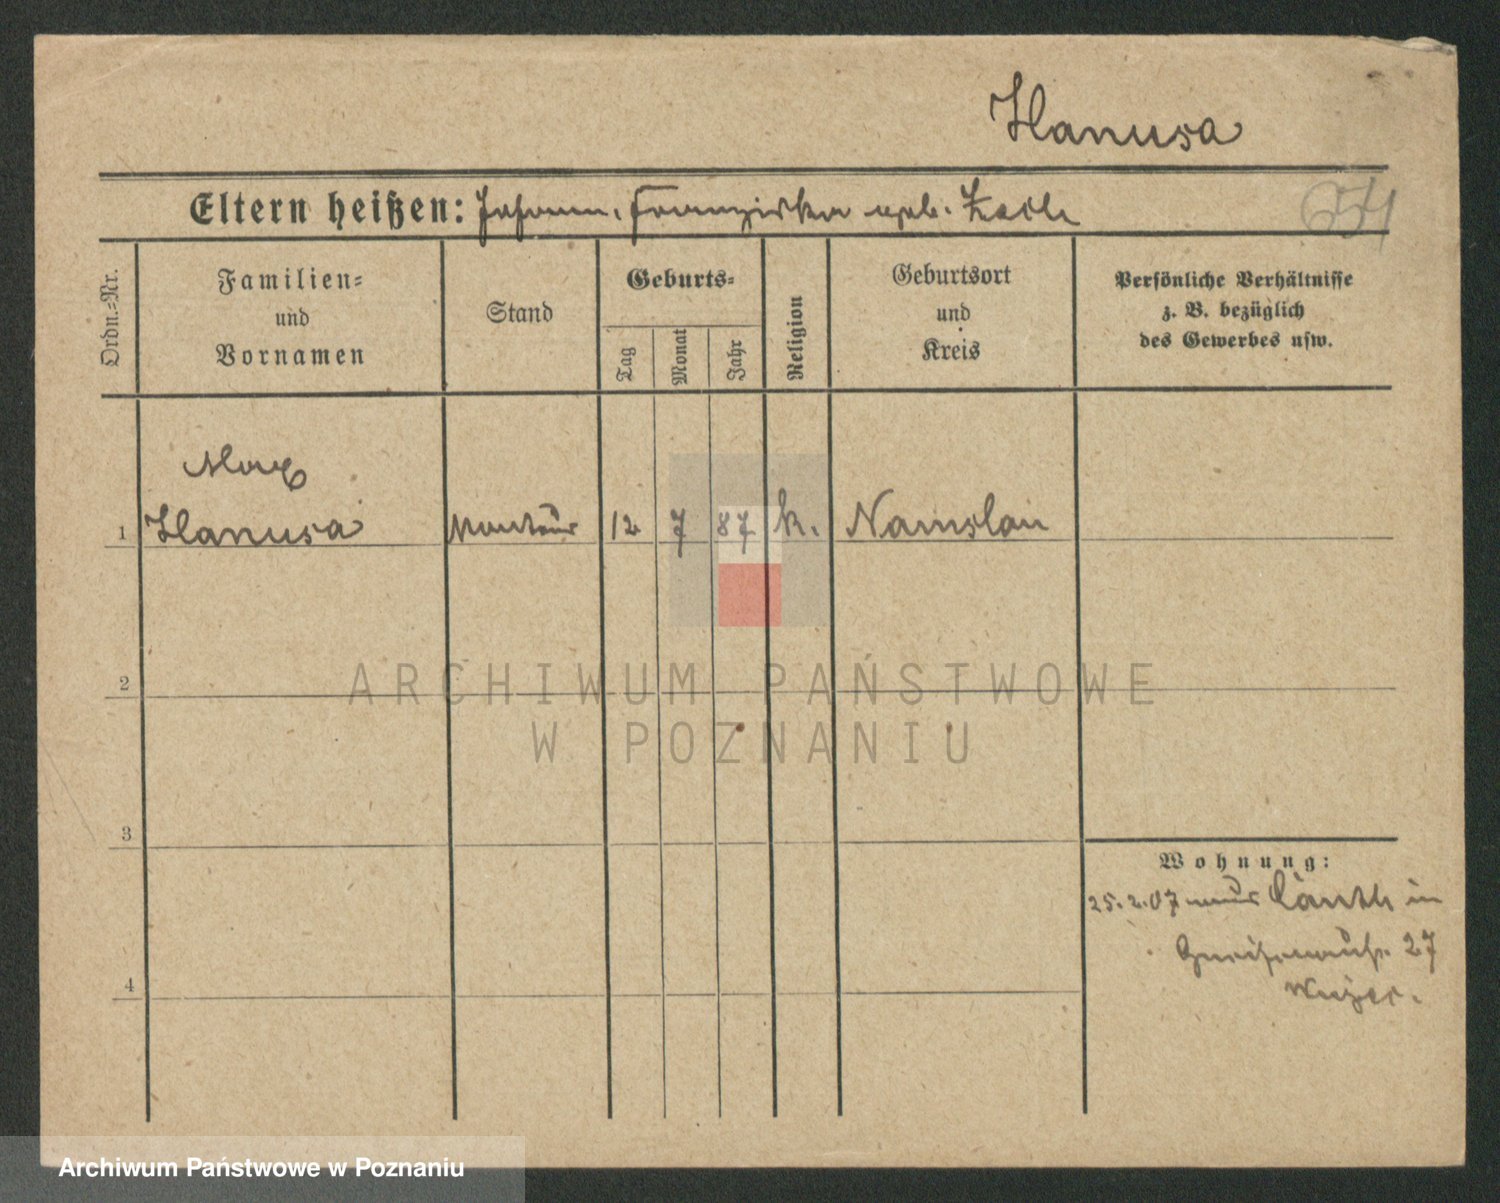 Hanusa
Eltern heißen: Johann, Franziska geb.
654
Ordn.=Nr.
Familien=
und
Vornamen
Stand
Geburts=
Tag
Monat
Jahr
Religion
Geburtsort
und
Kreis
Persönliche Verhältnisse
z. B. bezüglich
des Gewerbes usw.
Max
1 Hanusa Monteur 12 7 87 k. Namslau
2
3
4
Wohnung:
25.2.07 aus Canth in
Gneisenaustr. 27
ARCHIWUM PAŃSTWOWE
W POZNANIU
Archiwum Państwowe w Poznaniu